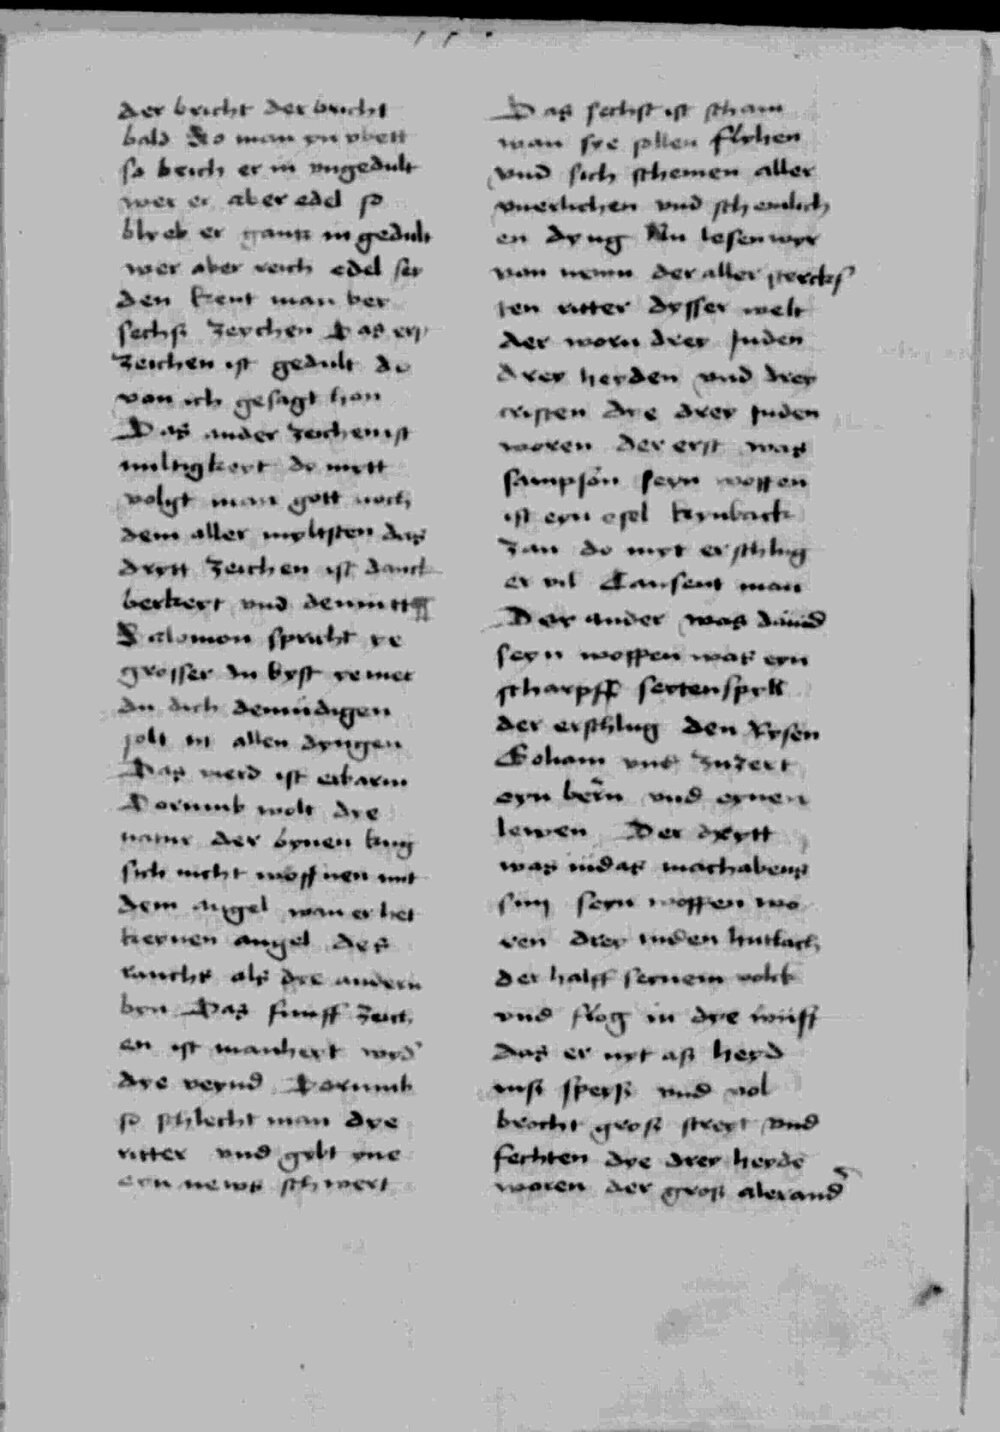 der bricht der bricht
bald So man yn vbett
so brich er in vngedult
wer er aber edel so
blyeb er gantz in gedult
wer aber reich edel sey
den kent man ber
sechs zeychen Das erst
zeichen ist gedult do
von ich gesagt hon
Das ander zeichen ist
miltigkeyt do mytt
volgt man gott noch
dem aller myltsten das
drytt zeichen ist danck
berkeyt vnd demutt
Salomon spricht ye
grosser du byst ye mer
du dich demudigen
solt in allen dyngen
Das vierd ist erbarm
Dorumb wolt dye
natur der bynen kung
sich nicht woffnen mit
dem angel wan er het
keynen angel des
rauchs als dye andern
byn Das funff zeich
en ist manheyt wyd'
dye veynd Dorumb
so schlecht man dye
ritter vnd gybt yne
eyn news schwert
Das sechst ist scham
wan sye sollen flyhen
vnd sich schemen aller
vnerlichen vnd schemlich
en dyng Nu lesen wyr
von newn der aller stercks
ten ritter dysser welt
der worn drey Juden
drey heyden vnd drey
cristen dye drey Juden
woren der erst was
sampson seyn woffen
ist eyn esel kynback
zan do myt erschlug
er vil Tausent man
Der ander was dauid
seyn woffen was eyn
scharpff seytenspyl
der erschlug den Rysen
Goliam vnd zuzert
eyn bern vnd eynen
lewen Der drytt
was iudas machabeus
sun seyn woffen wo
ren drey iuden hutlach
der halff seynem volck
vnd flog in dye wust
das er nyt ass heyd
niss speyss vnd vol
brocht gross streyt vnd
fechten dye drey heyde
woren der gross alexand'